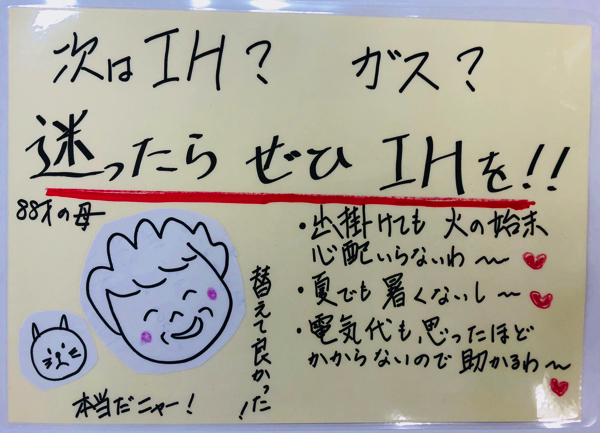 次はIH? ガス?
迷ったら ぜひ IHを!!
88才の母
・出掛けても 火の始末
心配いらないわ〜
・夏でも 暑くないし〜
・電気代も、思ったほど
かからないので 助かるわ〜
替えて良かった!
本当だニャー!